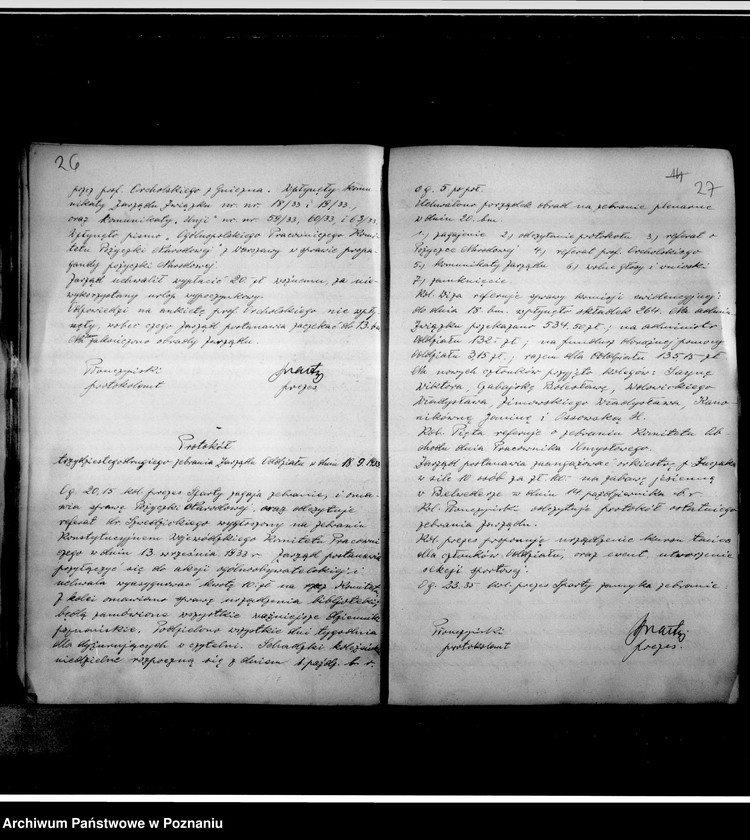 26
przez prof. Ocholskiego z Gniezna. Wpłynęły komu-
nikaty Zarządu Związku nr. nr. 18/33 i 19/33,
oraz komunikaty "Unji" nr. nr. 59/33, 60/33, i 63/33.
Wpłynęło pismo, Ogólnopolskiego Pracowniczego Komi-
tetu Pożyczki Narodowej z Warszawy w sprawie propa-
gandy pożyczki Narodowej.
Zarząd uchwalił wypłacić 20 zł woźnemu, za nie-
wykorzystany urlop wypoczynkowy.
Odpowiedzi na ankietę prof. Ocholskiego nie wpły-
nęły, wobec czego Zarząd postanawia zaczekać do 13.
Na tem zakończono obrady Zarządu.
protokolant prezes
Protokół
trzydziestegodrugiego zebrania Zarządu Oddziału w dniu 18.9.1933
O g. 20,15 kol. prezes Sparty zagaja zebranie, i oma-
wia sprawę Pożyczki Narodowej, oraz odczytuje
referat dr. wygłoszony na zebraniu
Konstytucyjnem Wojewódzkiego Komitetu Pracowni-
czego w dniu 13 września 1933 r. Zarząd postanawia
przyłączyć się do akcji ogólnoobywatelskiej i
uchwala wyasygnować kwotę 10 zł na rzecz Komitetu.
Z kolei omawiano sprawę urządzenia bibljoteki,
będą zamówione wszystkie ważniejsze dzienniki
poznańskie. Podzielono wszystkie dni tygodnia
dla dyżurujących w czytelni. Schadzki koleżeńskie
niedzielne rozpoczną się z dniem 1 paźdz. b. r.
27
o g. 5 popoł.
Uchwalono porządek obrad na zebranie plenarne
w dniu 20. bm.
1) zagajenie 2) odczytanie protokołu 3) referat o
Pożyczce Narodowej 4) referat prof. Ocholskiego
5) komunikaty Zarządu 6) wolne głosy i wnioski
7) zamknięcie.
Kol. Wiza referuje sprawy komisji ewidencyjnej:
do dnia 18 bm. wpłynęło składek 264. Na
Związku przekazano 534.50 zł; na
Oddziału 132.- zł; na fundusz obrony
Oddziału 3,15 zł; razem dla Oddziału 135 15 zł
Na nowych członków przyjęto kolegów:
Wiktora, Bolesława, Wołowickiego
Władysława, Zimorskiego Władysława, Kano-
nikównę Janinę i Ossowską H.
Kol. Pięta referuje o zebraniu Komitetu Ob-
chodu dnia Pracownika Umysłowego.
Zarząd postanawia zaangażować orkiestrę p.
w sile 10 osób za zł. na zabawę jesienną
w Belwederze w dniu 14 października b. r.
Kol. odczytuje protokół ostatniego
zebrania Zarządu.
Kol. prezes proponuje urządzenie kursu tańca
dla członków Oddziału, oraz event. utworzenie
sekcji sportowej.
O g. 23.35 kol. prezes Sparty zamyka zebranie.
protokolant prezes.
Archiwum Państwowe w Poznaniu